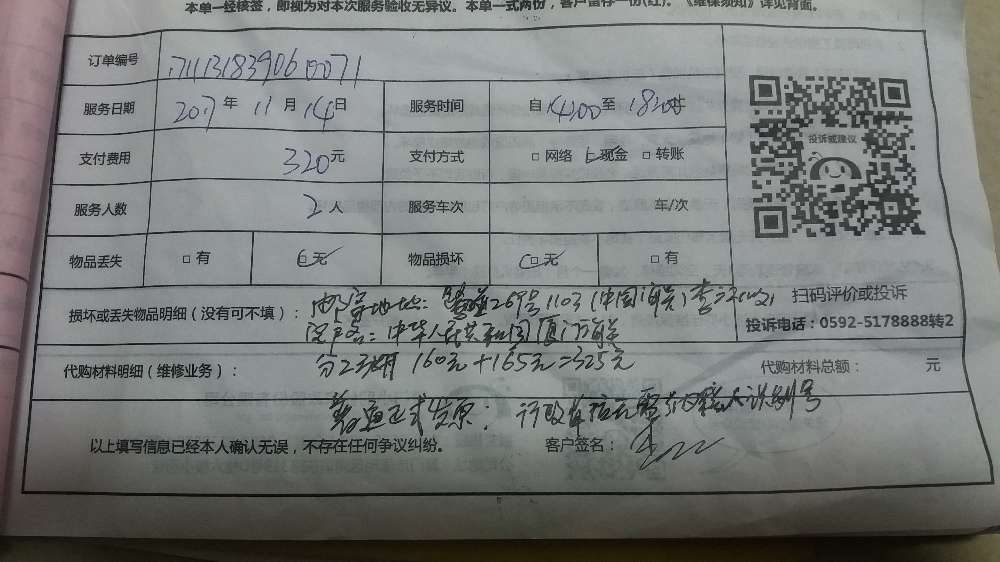 本单一经核签，即视为对本次服务验收无异议。本单一式两份，客户留存一份(红)。《维保须知》详见背面。
订单编号
服务日期 2017年 11月 14日 服务时间 自 1400至 1820止
支付费用 320元 支付方式 □ 网络 □ 现金 □ 转账
服务人数 2人 服务车次 车/次
物品丢失 □ 有 □ 无 物品损坏 □ 无 □ 有
投诉或建议
扫码评价或投诉
投诉电话：0592-5178888转2
损坏或丢失物品明细（没有可不填）： 地址： 269号1103 (中国海关)
中华人民共和国厦门海关
代购材料明细（维修业务）： 160元+165元=325元 代购材料总额： 元
普通正式发票： 行政单位无需纳税人识别号
以上填写信息已经本人确认无误，不存在任何争议纠纷。 客户签名：